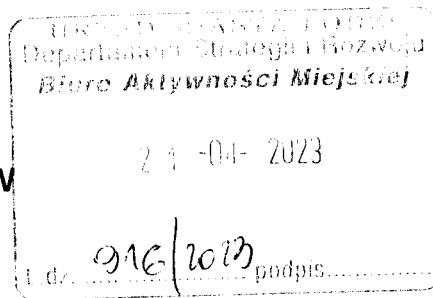 URZĄD MIASTA ŁODZI
Departament Strategii i Rozwoju
Biuro Aktywności Miejskiej
21 -04- 2023
W
L.dz. 916/2023 podpis